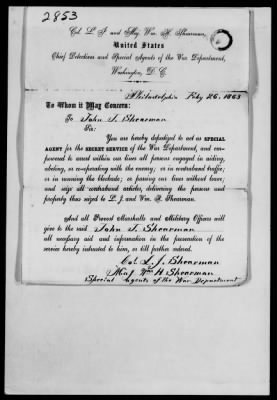 2853
Col. L. J. and Maj. Wm. H. Shearman,
United States
Chief Detectives and Special Agents of the War Department,
Washington, D. C.
Philadelphia Feby 26. 1863
To Whom it May Concern:
To John T. Shearman
Sir:
You are hereby deputized to act as SPECIAL
AGENT for the SECRET SERVICE of the War Department, and em-
powered to arrest within our lines all persons engaged in aiding,
abeting, or co-operating with the enemy; or in contraband traffic;
or in running the blockade; or passing our lines without leave;
and seize all contraband articles, delivering the persons and
property thus seized to L. J. and Wm. H. Shearman.
And all Provost Marshalls and Military Officers will
give to the said John T. Shearman
all necessary aid and information in the prosecution of the
service hereby intrusted to him, or till further ordered.
Col. L. J. Shearman
Maj. Wm H. Shearman
Special Agents of the War Department